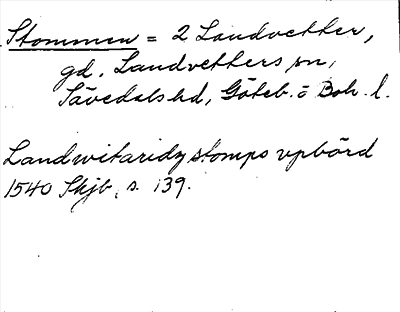 Stommen = 2 Landvetter,
gd, Landvetters sn,
Sävedals hd, Göteb. o Boh. l.
Landwitaridz stomps vpbörd
1540 Skjb, s. 139.